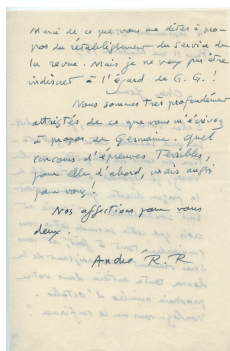 Merci de ce que vous me dites à pro-
pos du rétablissement du Service de
la revue. Mais je ne veux pas être
indiscret à l'égard de G. G. !
Nous sommes très profondément
attristés de ce que vous m'écrivez
à propos de Germaine : quel
concours d'épreuves terribles,
pour elle d'abord, mais aussi
pour vous !
Nos affections pour vous
deux.
André R. R